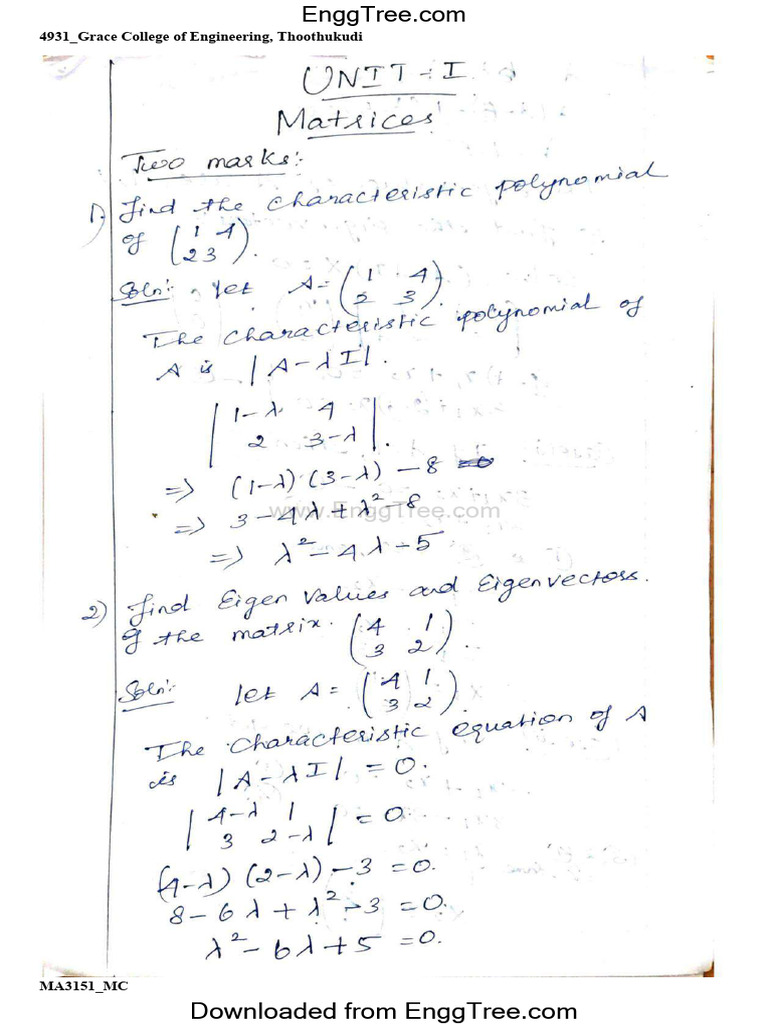 EnggTree.com
4931_Grace College of Engineering, Thoothukudi
UNIT - I
Matrices
Two marks:-
1) Find the characteristic polynomial
of (1 4
2 3).
Soln:- Let A = (1 4
2 3)
The characteristic polynomial of
A is |A - λI|.
|1-λ 4
2 3-λ|.
=> (1-λ) (3-λ) - 8
=> 3 - 4λ + λ² - 8
www.EnggTree.com
=> λ² - 4λ - 5
2) Find Eigen values and Eigenvectors.
of the matrix. (4 1
3 2).
Soln:- let A = (4 1
3 2).
The characteristic equation of A
is |A - λI| = 0.
|4-λ 1
3 2-λ| = 0
(4-λ) (2-λ) - 3 = 0.
8 - 6λ + λ² - 3 = 0.
λ² - 6λ + 5 = 0.
MA3151_MC
Downloaded from EnggTree.com